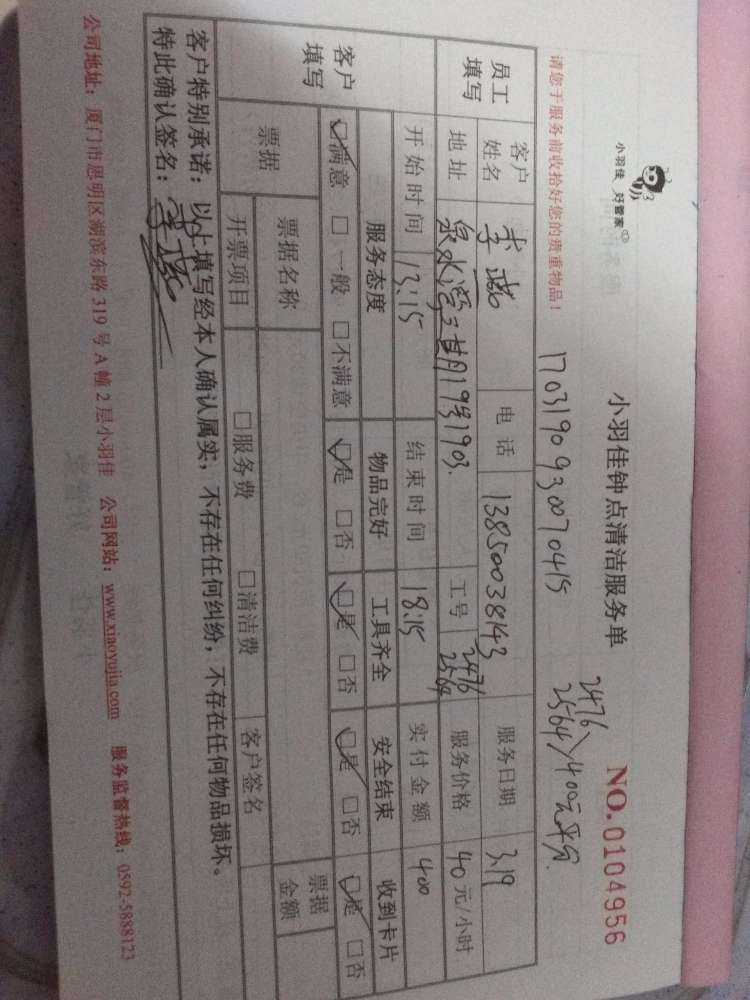 小羽佳 好管家
小羽佳钟点清洁服务单
NO.0104956
请您于服务前收拾好您的贵重物品!
1703190930070415
2476
2564 400元平分
员工填写
客户姓名 李 电话 13850038143 服务日期 3.19
地址 泉水湾 19号1903. 工号 2476 2564 服务价格 40元/小时
开始时间 13:15 结束时间 18:15 实付金额 400
客户填写
服务态度 物品完好 工具齐全 安全结束 收到卡片
☑满意 □一般 □不满意 ☑是 □否 ☑是 □否 ☑是 □否 ☑是 □否
票据 票据名称 票据金额
开票项目 □服务费 □清洁费 客户签名
客户特别承诺:以上填写经本人确认属实,不存在任何纠纷,不存在任何物品损坏。
特此确认签名:李
公司地址:厦门市思明区湖滨东路319号A幢2层小羽佳 公司网站:www.xiaoyujia.com 服务监督热线:0592-5888123